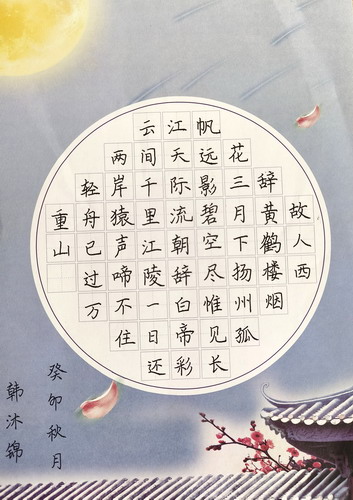 故人西
辞黄鹤楼烟
花三月下扬州孤
帆远影碧空尽惟见长
江天际流朝辞白帝彩
云间千里江陵一日还
两岸猿声啼不住
轻舟已过万
重山
癸卯秋月
韩沐锦